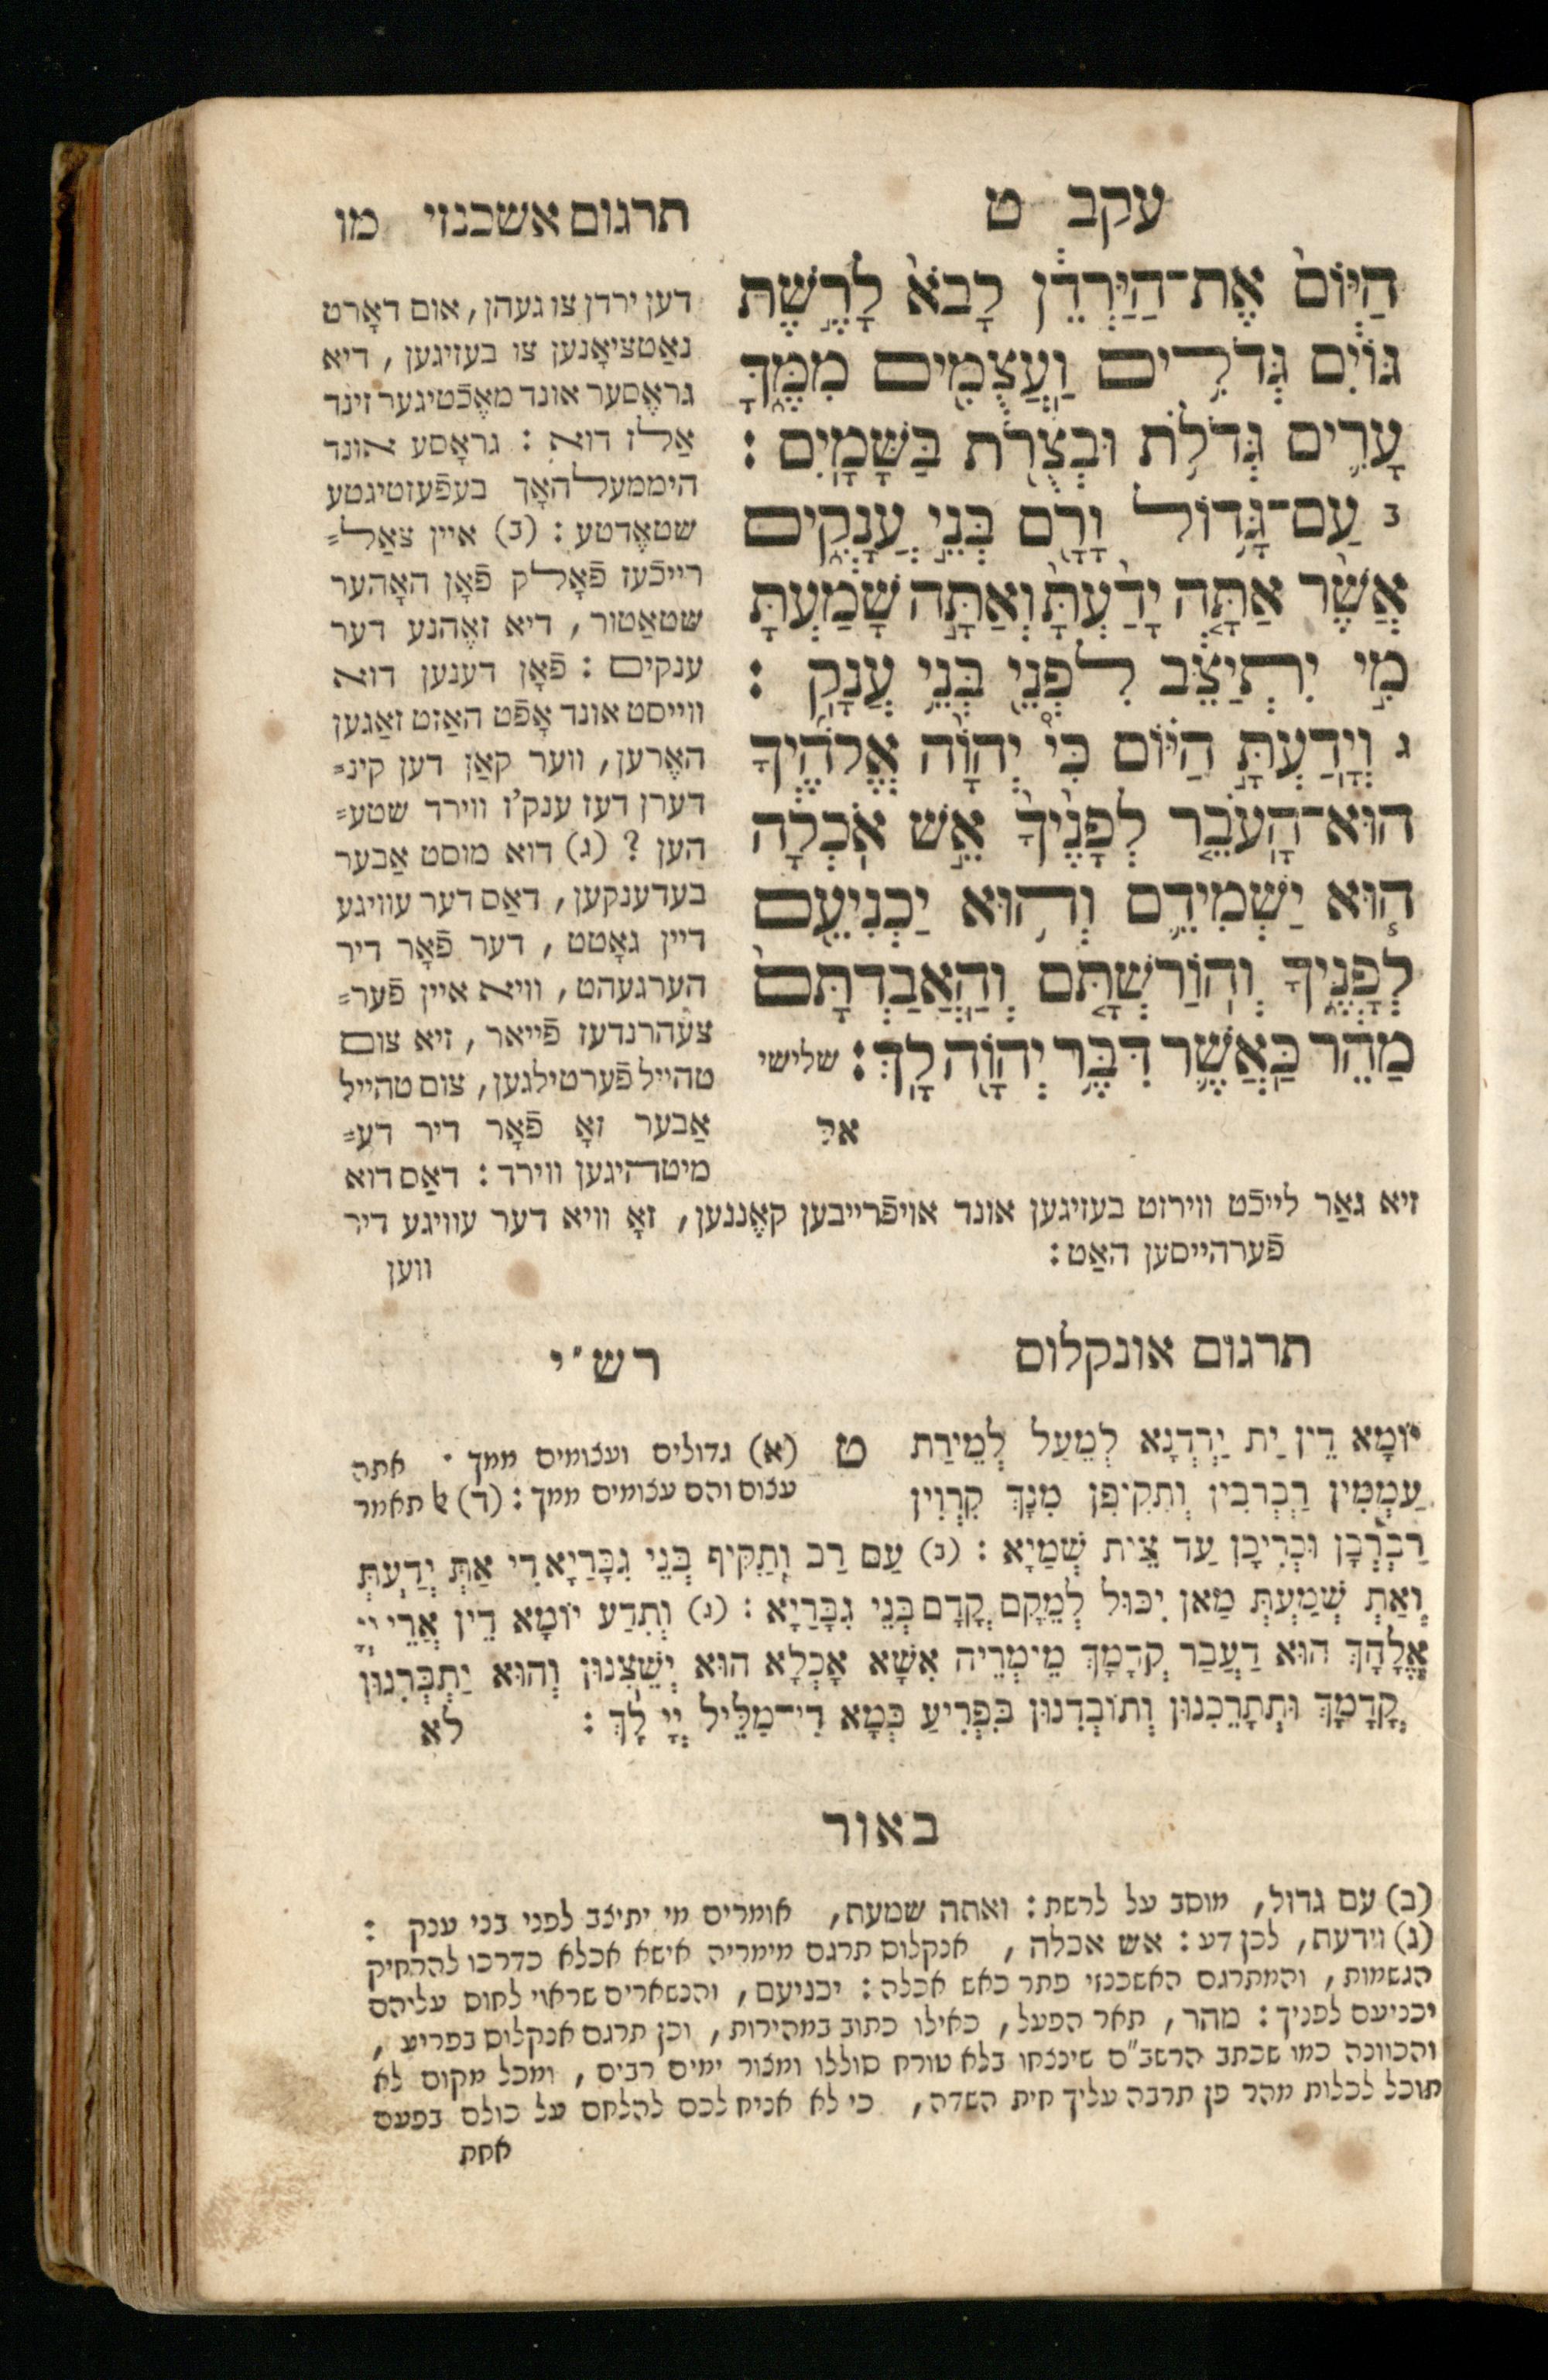 עקב ט
הַיּוֹם֙ אֶת־הַיַּרְדֵּ֔ן לָבֹא֙ לָרֶ֣שֶׁת
גּוֹיִ֔ם גְּדֹלִ֥ים וַעֲצֻמִ֖ים מִמֶּ֑ךָּ
עָרִ֛ים גְּדֹלֹ֥ת וּבְצֻרֹ֖ת בַּשָּׁמָֽיִם :
ב עַם־גָּד֥וֹל וָרָ֖ם בְּנֵ֣י עֲנָקִ֑ים
אֲשֶׁ֨ר אַתָּ֤ה יָדַ֙עְתָּ֙ וְאַתָּ֣ה שָׁמַ֔עְתָּ
מִ֣י יִתְיַצֵּ֔ב לִפְנֵ֖י בְּנֵ֥י עֲנָֽק :
ג וְיָדַעְתָּ֣ הַיּ֗וֹם כִּי֩ יְהוָ֨ה אֱלֹהֶ֜יךָ
הוּא־הָעֹבֵ֤ר לְפָנֶ֙יךָ֙ אֵ֣שׁ אֹֽכְלָ֔ה
ה֧וּא יַשְׁמִידֵ֛ם וְה֥וּא יַכְנִיעֵ֖ם
לְפָנֶ֑יךָ וְהֽוֹרַשְׁתָּ֤ם וְהַֽאֲבַדְתָּם֙
מַהֵ֔ר כַּאֲשֶׁ֛ר דִּבֶּ֥ר יְהוָ֖ה לָֽךְ : שלישי
אל
תרגום אשכנזי מו
דען ירדן צו געהן, אום דאָרט
נאַטציאָנען צו בעזיגען, דיא
גראֶסער אונד מאֶכֿטיגער זינד
אַלז דוא : גראָסע אונד
היממעלהאָך בעפֿעזטיגטע
שטאֶדטע : (ב) איין צאַל=
רייכֿעז פֿאָלק פֿאָן האָהער
שטאַטור, דיא זאֶהנע דער
ענקים : פֿאָן דענען דוא
ווייסט אונד אָפֿט האַזט זאַגען
האֶרען, ווער קאַן דען קינ=
דערן דעז ענק'ז ווירד שטע=
הען ? (ג) דוא מוסט אַבער
בעדענקען, דאַס דער עוויגע
דיין גאָטט, דער פֿאָר דיר
הערגעהט, וויא איין פֿער=
צעהרנדעז פֿייאר, זיא צום
טהייל פֿערטילגען, צום טהייל
אַבער זאָ פֿאָר דיר דע=
מיטהיגען ווירד : דאַס דוא
זיא גאַר לייכֿט ווירזט בעזיגען אונד אויפֿרייבען קאֶננען, זאָ וויא דער עוויגע דיר
פֿערהייסען האַט :
ווען
תרגום אונקלוס
יוֹמָא דֵין יַת יַרְדְנָא לְמֵעַל לְמֵירַת
עַמְמִין רַבְרְבִין וְתַקִיפִן מִנָךְ קִרְוִין
רַבְרְבָן וּכְרִיכָן עַד צֵית שְׁמַיָא : (ב) עַם רַב וְתַקִּיף בְּנֵי גִבָּרַיָא דִי אַתְּ יְדַעְתְּ
וְאַתְּ שְׁמַעְתְּ מַאן יִכּוּל לְמֵקָם קֳדָם בְּנֵי גִבָּרַיָא : (ג) וְתִדַע יוֹמָא דֵין אֲרֵי יְיָ
אֱלָהָךְ הוּא דַעֲבַר קֳדָמָךְ מֵימְרֵיהּ אִשָׁא אָכְלָא הוּא יְשֵׁצִנוּן וְהוּא יַתְבְּרִנוּן
קֳדָמָךְ וּתְתָרֵכִנוּן וְתוֹבְדִנוּן בִּפְרִיעַ כְּמָא דִי־מַלִיל יְיָ לָךְ :
לא
רש"י
ט (א) גדולים ועצומים ממך · אתה
עצום והם עצומים ממך : (ד) אל תאמר
באור
(ב) עם גדול, מוסב על לרשת : ואתה שמעת, אומרים מי יתיצב לפני בני ענק :
(ג) וידעת, לכן דע : אש אכלה, אנקלוס תרגם מימריה אישא אכלא כדרכו להרחיק
הגשמות, והמתרגם האשכנזי פתר כאש אכלה : יכניעם, והנשארים שראוי לחוס עליהם
יכניעם לפניך : מהר, תאר הפעל, כאילו כתוב במהירות, וכן תרגם אנקלוס בפריע,
והכוונה כמו שכתב הרשב"ם שינצחו בלא טורח סוללו ומצור ימים רבים, ומכל מקום לא
תוכל לכלות מהר פן תרבה עליך חית השדה, כי לא אניח לכם להלחם על כולם בפעם
אחת